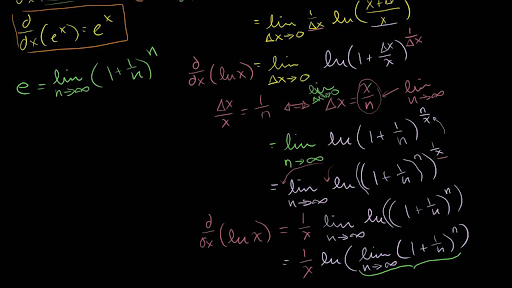 d/dx(e^x) = e^x
e = lim n→∞ (1 + 1/n)^n
= lim Δx→0 1/Δx ln((x+Δx)/x)
d/dx(ln x) = lim Δx→0 ln(1 + Δx/x)^(1/Δx)
Δx/x = 1/n ⟺ lim Δx→0 Δx = x/n ← lim n→∞
= lim n→∞ ln(1 + 1/n)^(n/x)
= lim n→∞ ln((1 + 1/n)^n)^(1/x)
d/dx(ln x) = 1/x lim n→∞ ln((1 + 1/n)^n)
= 1/x ln(lim n→∞ (1 + 1/n)^n)